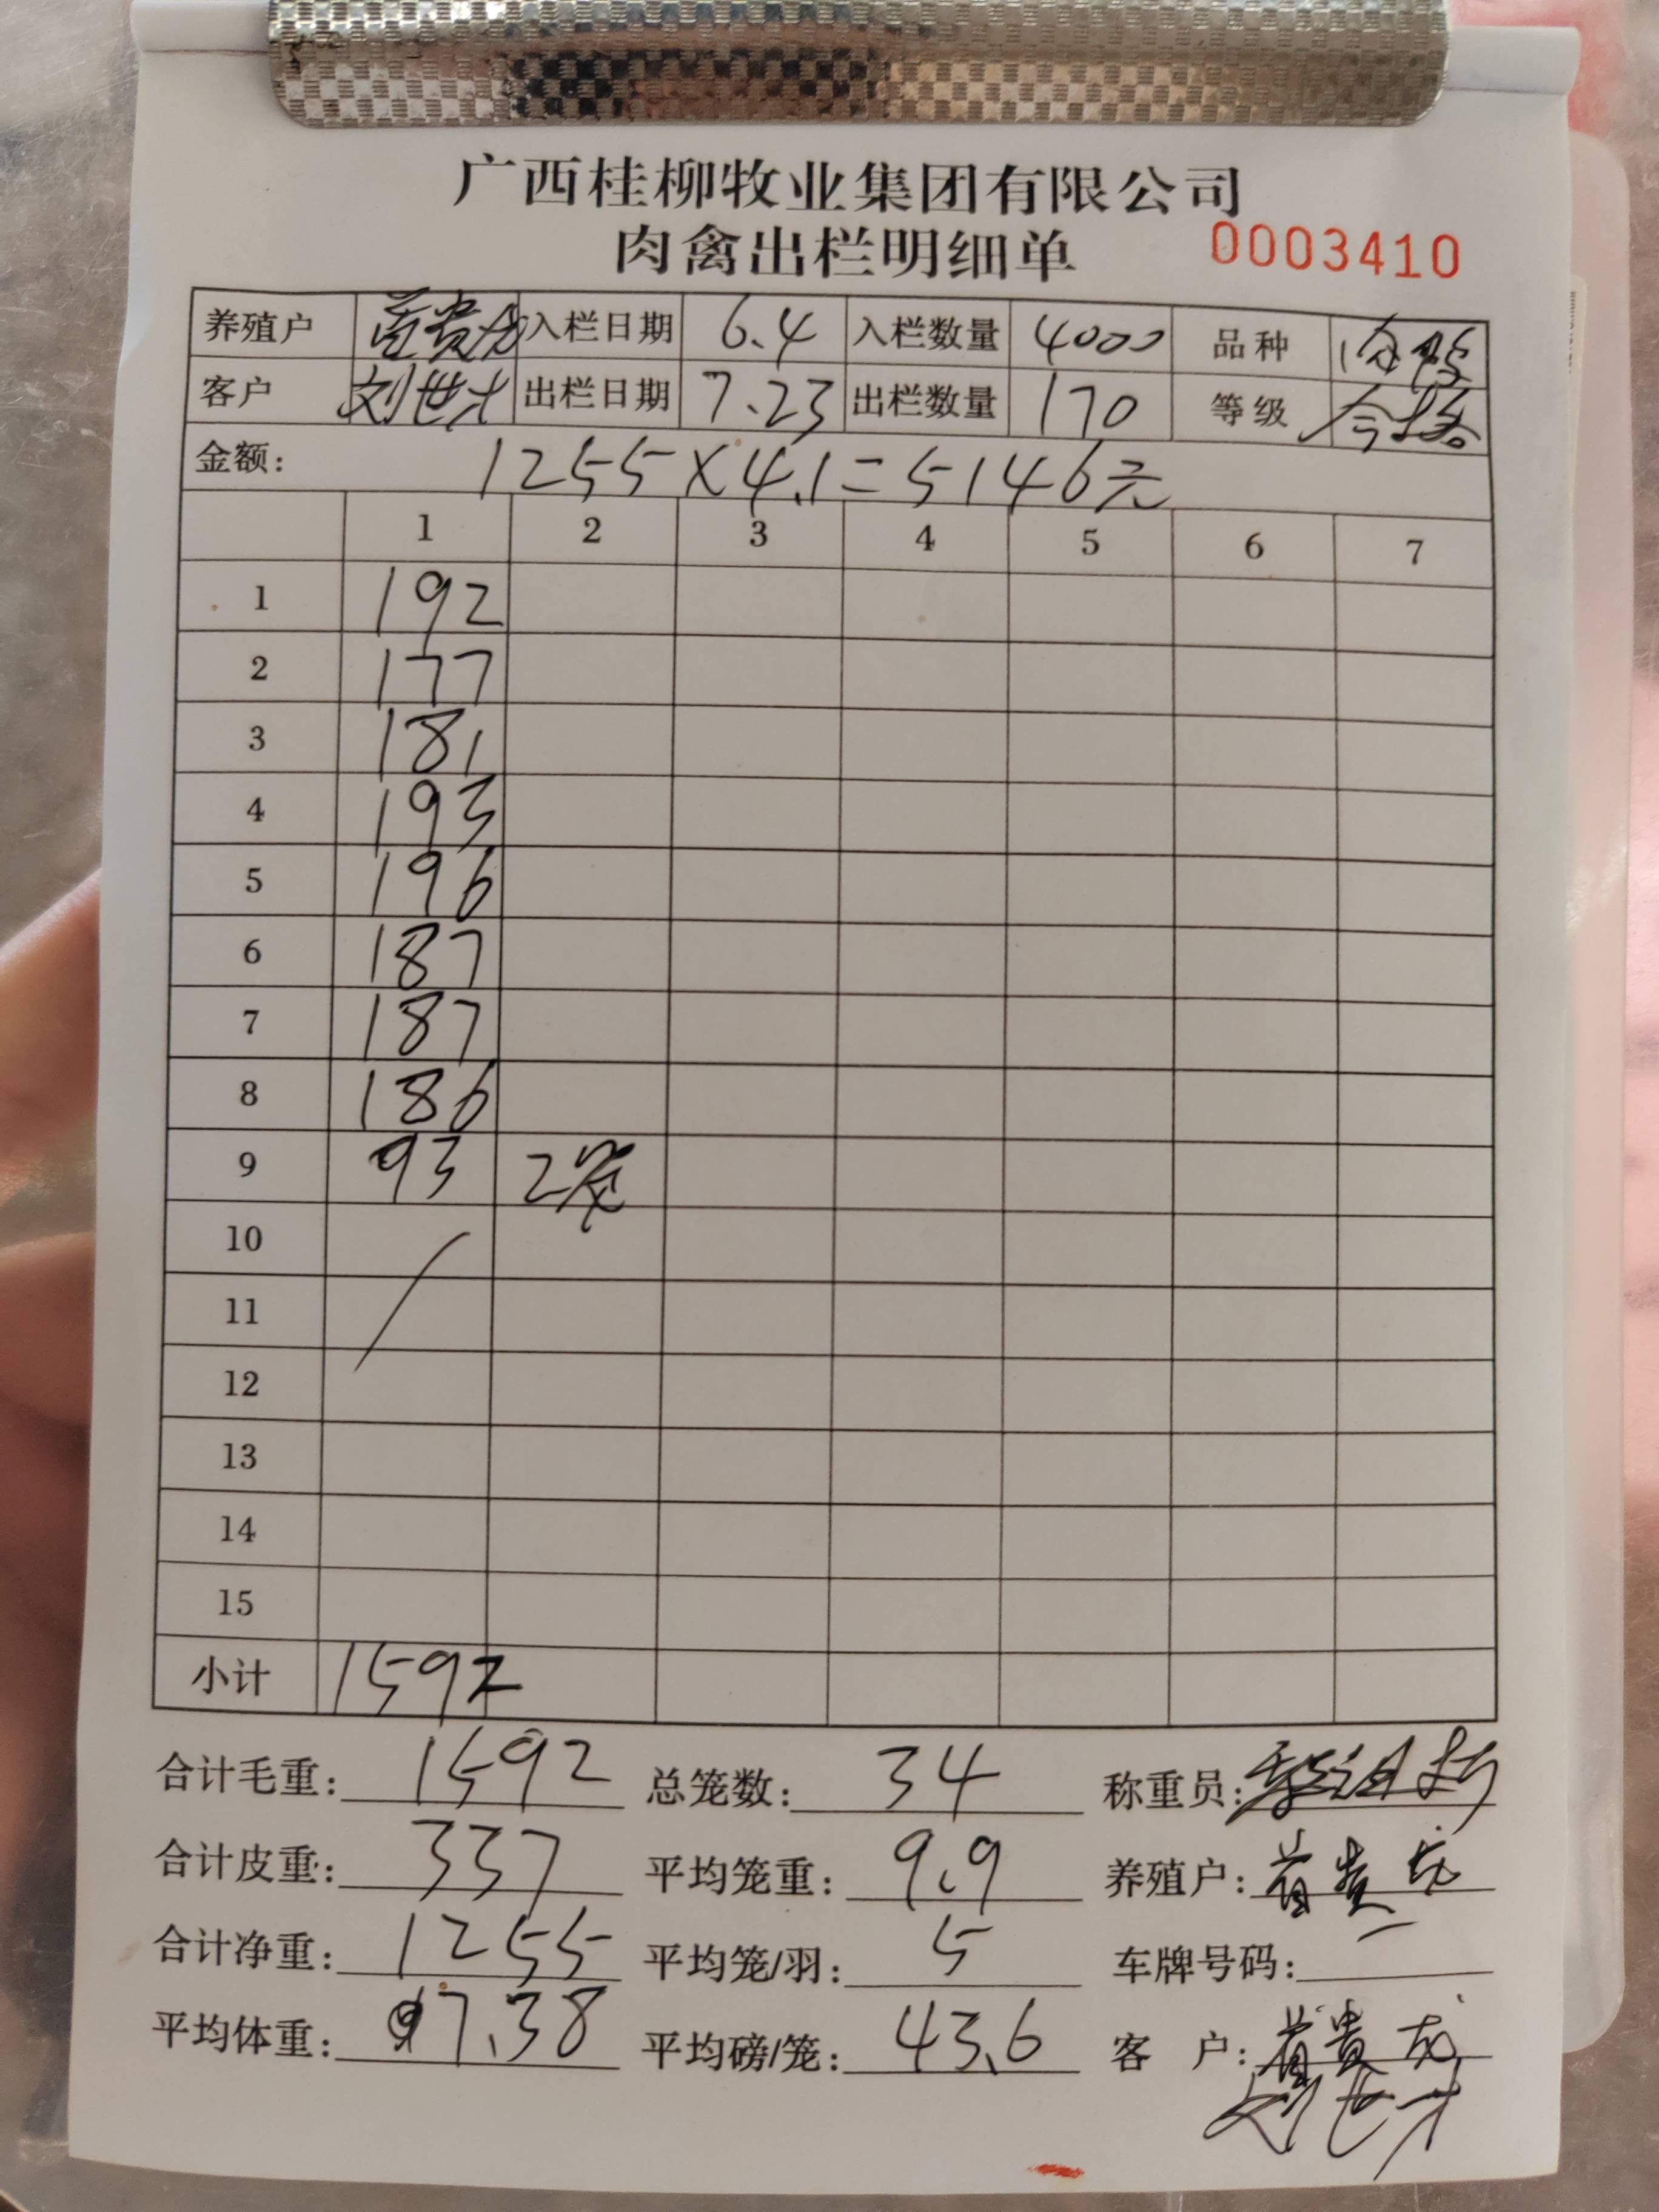 广西桂柳牧业集团有限公司
肉禽出栏明细单 0003410
养殖户 入栏日期 6.4 入栏数量 4000 品种
客户 刘世才 出栏日期 7.23 出栏数量 170 等级 合格
金额: 1255×4.1=5146元
1 2 3 4 5 6 7
1 192
2 177
3 181
4 193
5 196
6 187
7 187
8 186
9 93 2笼
10
11
12
13
14
15
小计 1592
合计毛重: 1592 总笼数: 34 称重员:
合计皮重: 337 平均笼重: 9.9 养殖户: 贵龙
合计净重: 1255 平均笼/羽: 5 车牌号码:
平均体重: 7.38 平均磅/笼: 43.6 客户: 贵龙
刘世才